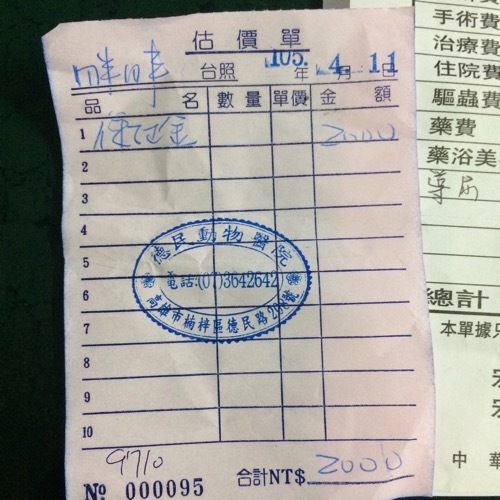 估價單
台照 105年 4月 11
品名 數量 單價 金額
1 保証金 2000
2
3
4
5
6
7
8
9
10
德民動物醫院
電話:(07)3642642
高雄市楠梓區德民路
9710
№ 000095 合計NT$ 2000
手術費
治療費
住院費
驅蟲費
藥費
藥浴美
導尿
總計
本單據只
中華